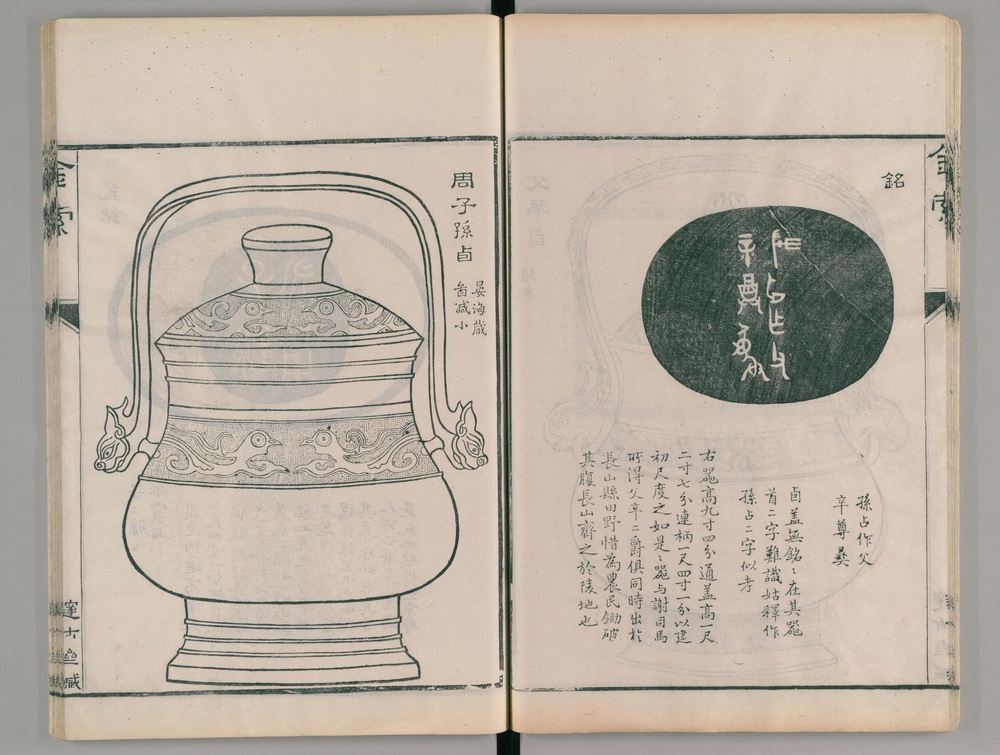 金索
銘
孫占作父
辛尊彝
卣蓋無銘〻在其器
首二字難識姑釋作
孫占二字似考
右器高九寸四分通蓋高一尺
二寸七分連柄一尺四寸一分以建
初尺度之如是〻器与謝司馬
所得父辛二爵俱同時出於
長山縣田野惜為農民鋤破
其腹長山齊之於陵地也
周子孫卣
晏海藏
啚减小
金索